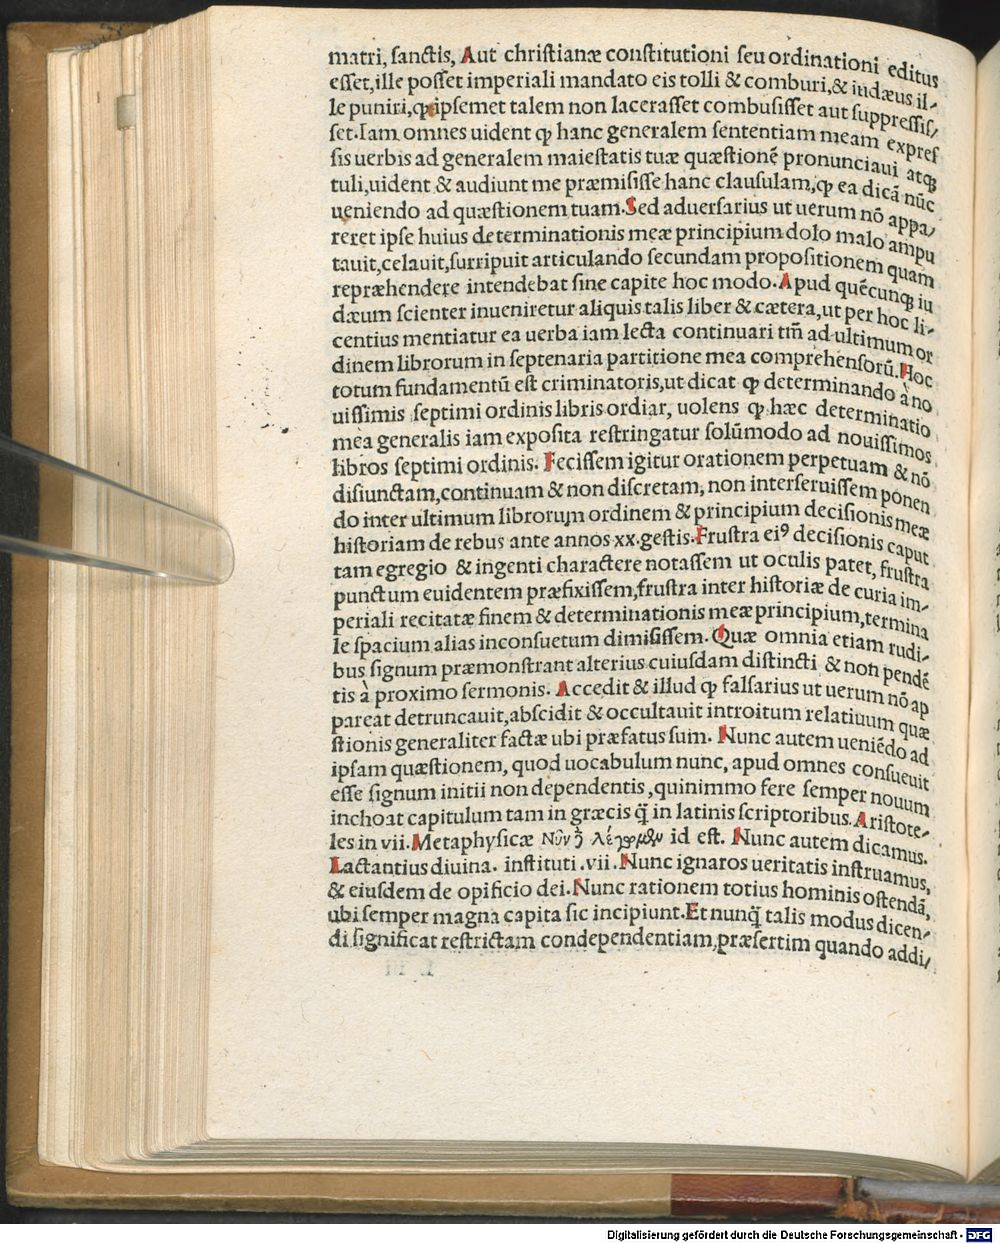 matri, sanctis, Aut christianæ constitutioni seu ordinationi editus
esset,ille posset imperiali mandato eis tolli & comburi,& iudæus il-
le puniri,ꝙ ipsemet talem non lacerasset combusisset aut suppressis/
set.Iam omnes uident ꝙ hanc generalem sententiam meam expres
sis uerbis ad generalem maiestatis tuæ quæstionē pronunciaui atqꝫ
tuli,uident & audiunt me præmisisse hanc clausulam,ꝙ ea dicā nūc
ueniendo ad quæstionem tuam.Sed aduersarius ut uerum nō appa/
reret ipse huius determinationis meæ principium dolo malo ampu
tauit,celauit,surripuit articulando secundam propositionem quam
repræhendere intendebat sine capite hoc modo.Apud quēcunqꝫ iu
dæum scienter inueniretur aliquis talis liber & cætera,ut per hoc li-
centius mentiatur ea uerba iam lecta continuari tm̄ ad ultimum or
dinem librorum in septenaria partitione mea comprehensorū.Hoc
totum fundamentū est criminatoris,ut dicat ꝙ determinando à no
uissimis septimi ordinis libris ordiar, uolens ꝙ hæc determinatio
mea generalis iam exposita restringatur solūmodo ad nouissimos
libros septimi ordinis. Fecissem igitur orationem perpetuam & nō
disiunctam,continuam & non discretam, non interseruissem ponen
do inter ultimum librorum ordinem & principium decisionis meæ
historiam de rebus ante annos xx.gestis.Frustra eiꝰ decisionis caput
tam egregio & ingenti charactere notassem ut oculis patet, frustra
punctum euidentem præfixissem,frustra inter historiæ de curia im-
periali recitatæ finem & determinationis meæ principium,termina
le spacium alias inconsuetum dimisissem.Quæ omnia etiam rudi-
bus signum præmonstrant alterius cuiusdam distincti & non pendē
tis à proximo sermonis. Accedit & illud ꝙ falsarius ut uerum nō ap
pareat detruncauit,abscidit & occultauit introitum relatiuum quæ
stionis generaliter factæ ubi præfatus sum. Nunc autem ueniēdo ad
ipsam quæstionem, quod uocabulum nunc, apud omnes consueuit
esse signum initii non dependentis,quinimmo fere semper nouum
inchoat capitulum tam in græcis q̄ in latinis scriptoribus.Aristote-
les in vii.Metaphysicæ Νῦν δ̓ λέγωμεν id est. Nunc autem dicamus.
Lactantius diuina. instituti.vii.Nunc ignaros ueritatis instruamus,
& eiusdem de opificio dei.Nunc rationem totius hominis ostendā,
ubi semper magna capita sic incipiunt.Et nunq̄ talis modus dicen-
di significat restrictam condependentiam,præsertim quando addi/
Digitalisierung gefördert durch die Deutsche Forschungsgemeinschaft - DFG